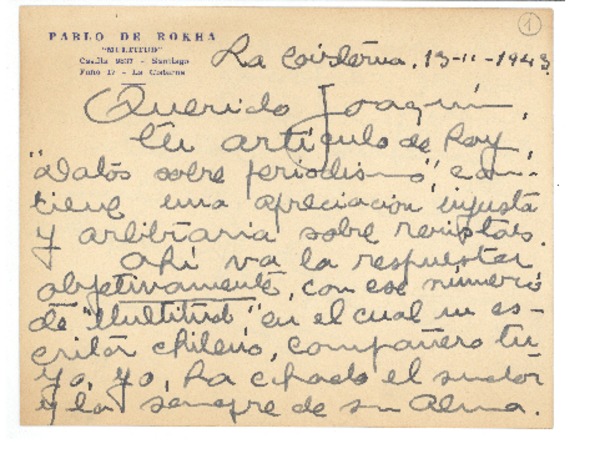 1
PABLO DE ROKHA
"MULTITUD"
Casilla - Santiago
- La Cisterna
La Cisterna, 13-II-1943
Querido Joaquín,
tu artículo de hoy,
"Datos sobre periodismo", con-
tiene una apreciación injusta
y arbitraria sobre revistas.
Ahí va la respuesta
objetivamente, con ese número
de "Multitud" en el cual un es-
critor chileno, compañero tu-
yo, yo, ha echado el sudor
y la sangre de su alma.